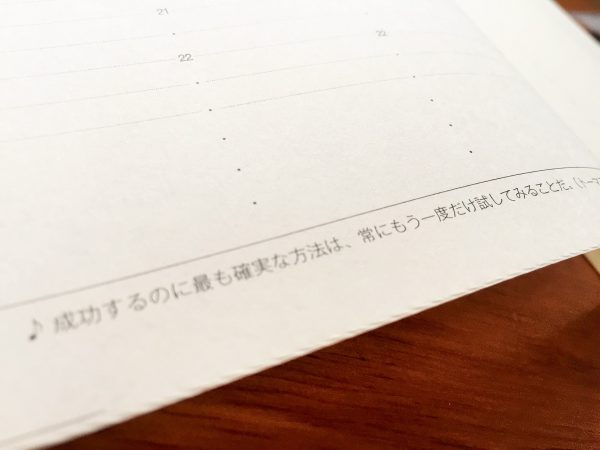 21
22
22
♪ 成功するのに最も確実な方法は、常にもう一度だけ試してみることだ。(トーマ